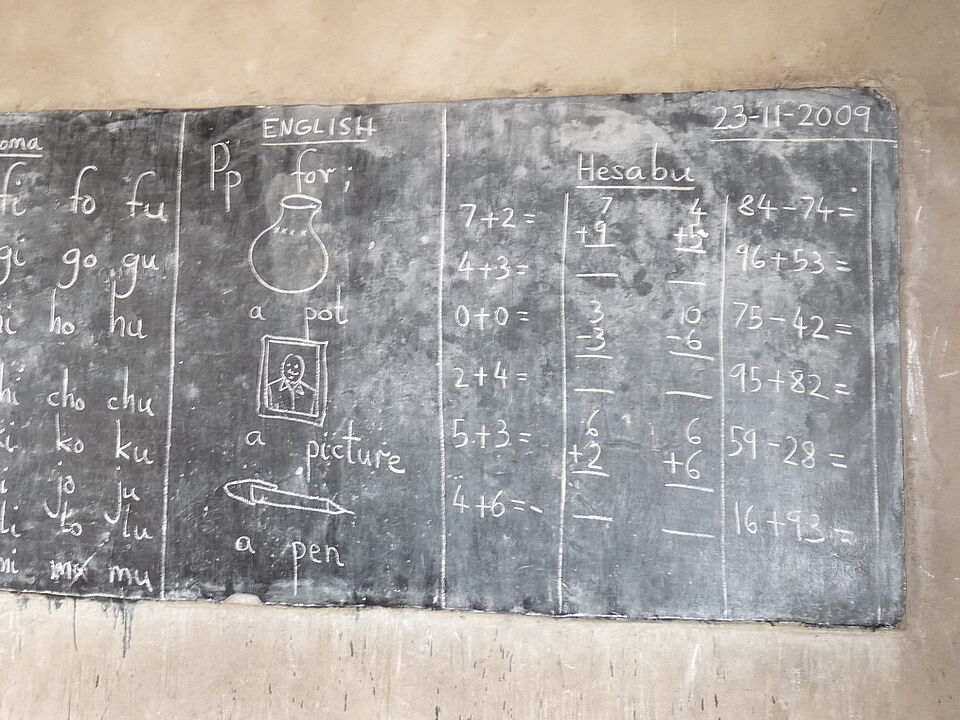 oma
fi fo fu
gi go gu
hi ho hu
hi cho chu
ki ko ku
i jo ju
li lo lu
mi mo mu
ENGLISH
Pp for;
a pot
a picture
a pen
23-11-2009
Hesabu
7+2=
4+3=
0+0=
2+4=
5+3=
4+6=
7 4
+9 +5
3 10
-3 -6
6 6
+2 +6
84-74=
96+53=
75-42=
95+82=
59-28=
16+93=